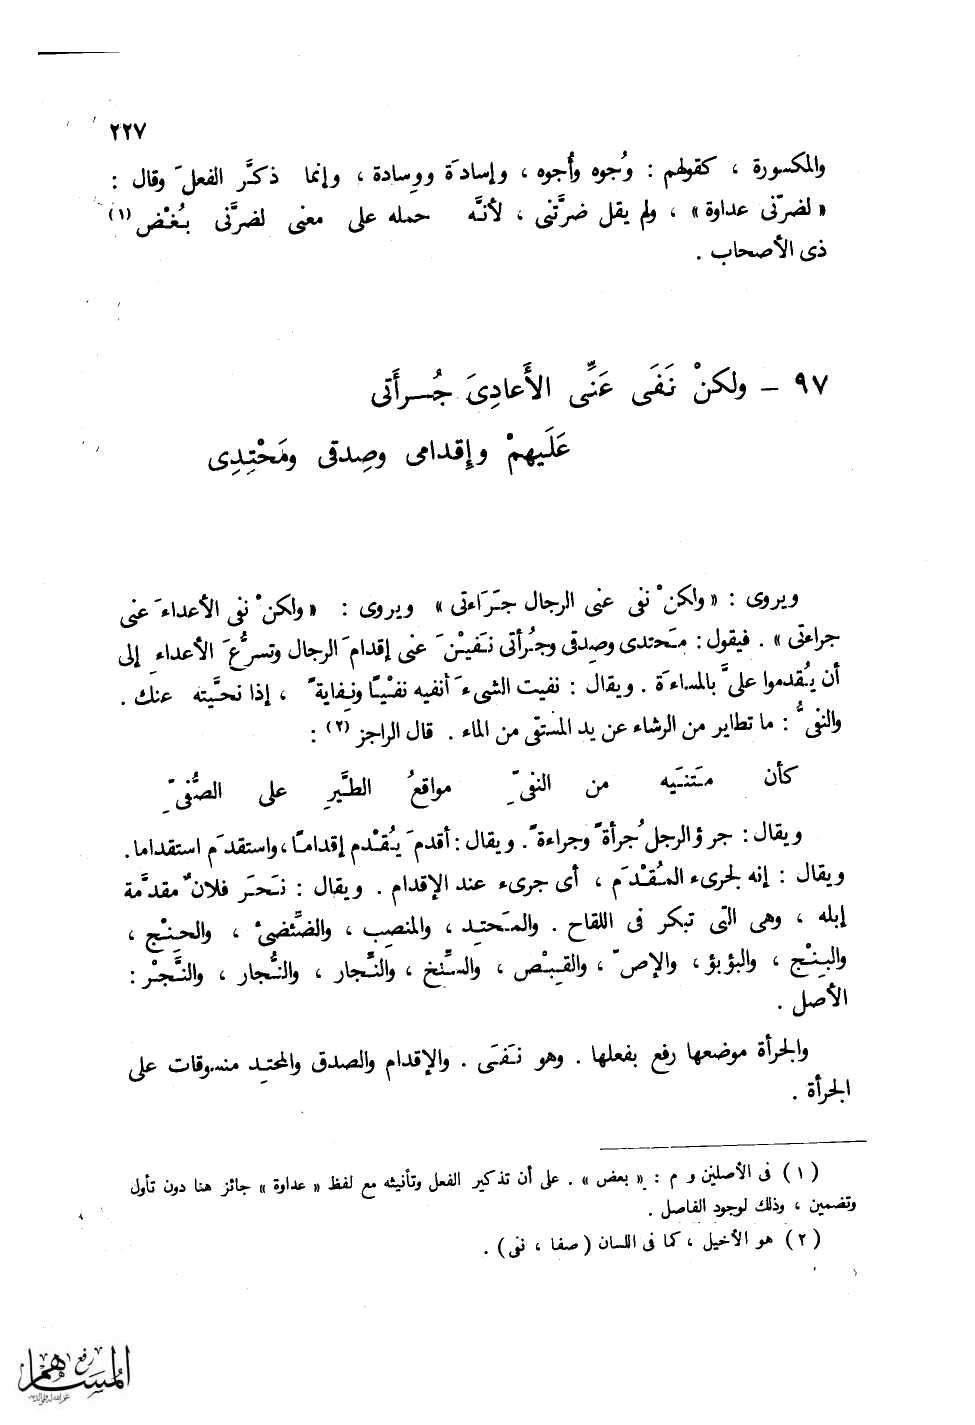 ٢٢٧
والمكسورة ، كقولهم : وُجوه وأُجوه ، وإسادَة ووِسادة ، وإنما ذكَّر الفعلَ وقال :
« لضرّنى عداوة » ، ولم يقل ضرَّتنى ، لأنَّه حمله على معنى لضرَّنى بُغْض (١)
ذى الأصحاب .
٩٧ – ولكنْ نَفَى عَنِّى الأَعادِىَ جُرأَتى
عَلَيهمْ وإِقدامى وصِدقى ومَحْتِدِى
ويروى : « ولكنْ نفى عنى الرجال جَرَاءَتى » ويروى : « ولكنْ نفى الأعداءَ عنى
جراءتى » . فيقول : مَحتدى وصِدقى وجُرأتى نَفَيْنَ عنى إقدامَ الرجال وتسرُّعَ الأعداءِ إلى
أن يُقدموا علىَّ بالمساءَة . ويقال : نفيت الشىءَ أنفيه نفْيًا ونِفايةً ، إذا نحَّيته عنك .
والنفىُّ : ما تطاير من الرشاء عن يد المستقى من الماء . قال الراجز (٢) :
كأن مَتنَيه من النفىِّ مواقعُ الطَّيرِ على الصُّفىِّ
ويقال : جرؤ الرجل جُرأةً وجراءةً . ويقال : أقدمَ يُقْدم إقدامًا ، واستقدَم استقداما .
ويقال : إنه لجرىء المُقْدَم ، أى جرىء عند الإقدام . ويقال : نَحَر فلانٌ مقدَّمة
إبله ، وهى التى تبكر فى اللقاح . والمَحتِد ، والمنصِب ، والضِّئضىْ ، والحِنْج ،
والبِنْج ، والبؤبؤ ، والإصّ ، والقِبْص ، والسِّنْخ ، والنِّجار ، والنُّجار ، والنَّجْر :
الأصل .
والجرأة موضعها رفع بفعلها . وهو نَفَى . والإقدام والصدق والمحتِد منسوقات على
الجرأة .
(١) فى الأصلين و م : « بعض » . على أن تذكير الفعل وتأنيثه مع لفظ « عداوة » جائز هنا دون تأول
وتضمين ، وذلك لوجود الفاصل .
(٢) هو الأخيل ، كما فى اللسان ( صفا ، نفى ) .
المساهم
رفع